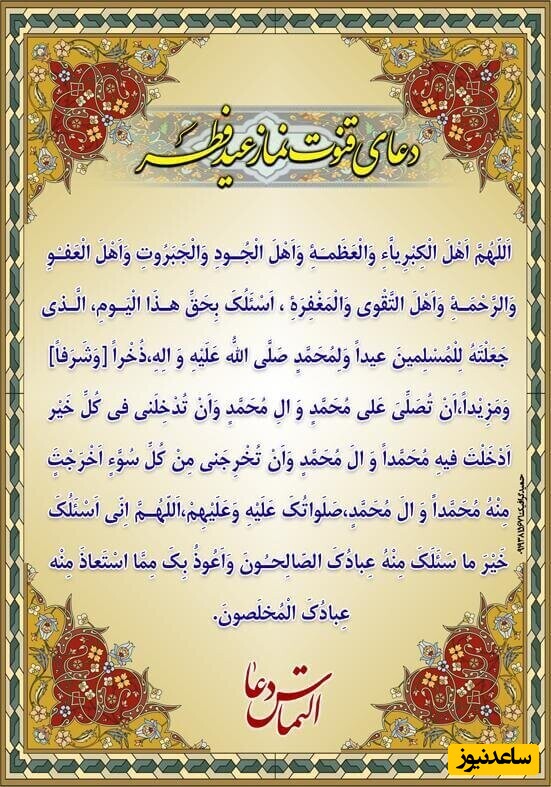 دعای قنوت نماز عید فطر
اَللّهُمَّ اَهْلَ الْکِبْرِیاَّءِ وَالْعَظَمَـةِ وَاَهْلَ الْجُـودِ وَالْجَبَرُوتِ وَاَهْلَ الْعَفْـوِ
وَالرَّحْمَـةِ وَاَهْلَ التَّقْوی وَالْمَغْفِرَةِ ، اَسْئَلُکَ بِحَقِّ هـذَا الْیَـومِ، الَّـذی
جَعَلْتَهُ لِلْمُسْلِمینَ عیداً وَلِمُحَمَّدٍ صَلَّی اللهُ عَلَیْهِ وَ الِهِ،ذُخْراً [وَشَرَفاً]
وَمَزیْداً،اَنْ تُصَلِّیَ عَلی مُحَمَّدٍ وَ الِ مُحَمَّدٍ وَاَنْ تُدْخِلَنی فی کُلِّ خَیْرٍ
اَدْخَلْتَ فیهِ مُحَمَّداً وَ الَ مُحَمَّدٍ وَاَنْ تُخْرِجَنی مِنْ کُلِّ سُوَّءٍ اَخْرَجْتَ
مِنْهُ مُحَمَّداً وَ الَ مُحَمَّدٍ،صَلَواتُکَ عَلَیْهِ وَعَلَیْهِمْ،اَللّهُـمَّ اِنّی اَسْئَلُکَ
خَیْرَ ما سَئَلَکَ مِنْهُ عِبادُکَ الصّالِحُـونَ وَاَعُوذُ بِکَ مِمَّا اسْتَعاذَ مِنْه
عِبادُکَ الْمُخلَصونَ.
التماس دعا
ساعدنیوز